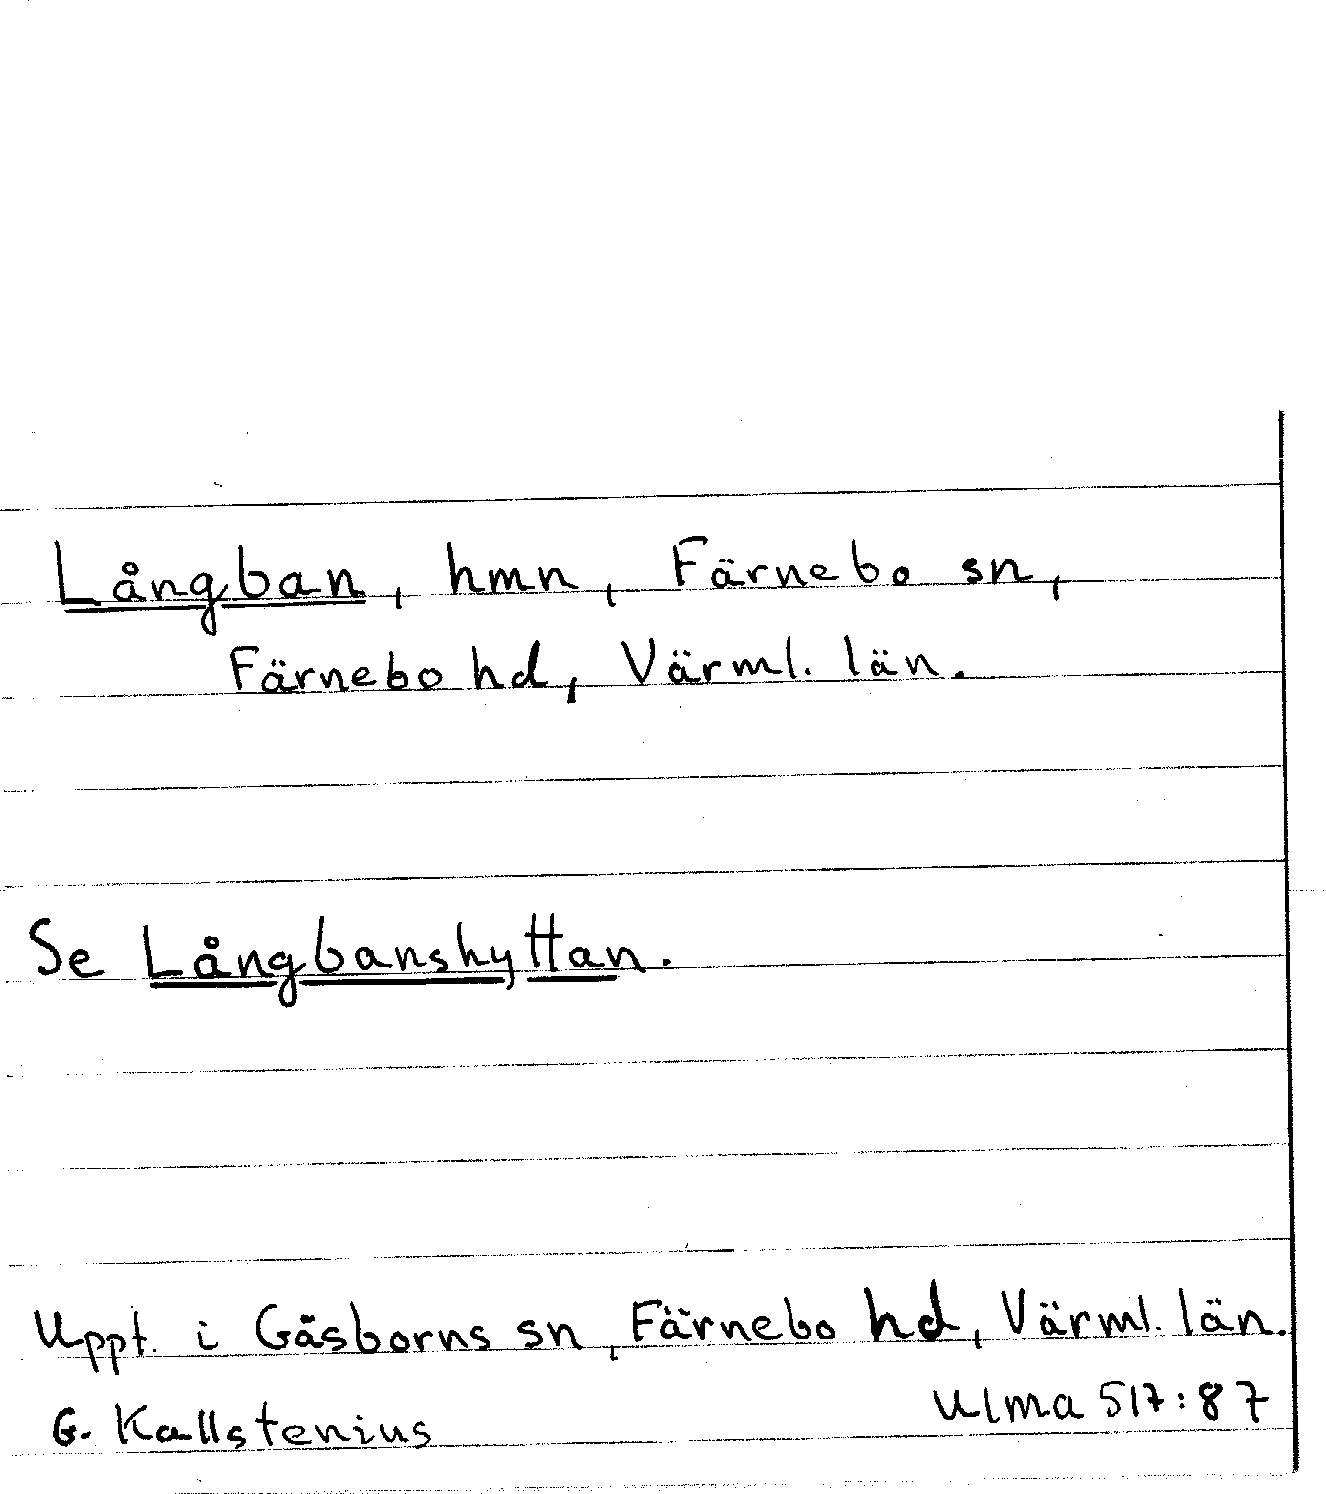 Långban, hmn, Färnebo sn,
Färnebo hd, Värml. län.
Se Långbanshyttan.
Uppt. i Gåsborns sn, Färnebo hd, Värml. län.
G. Kallstenius
Ulma 517:87